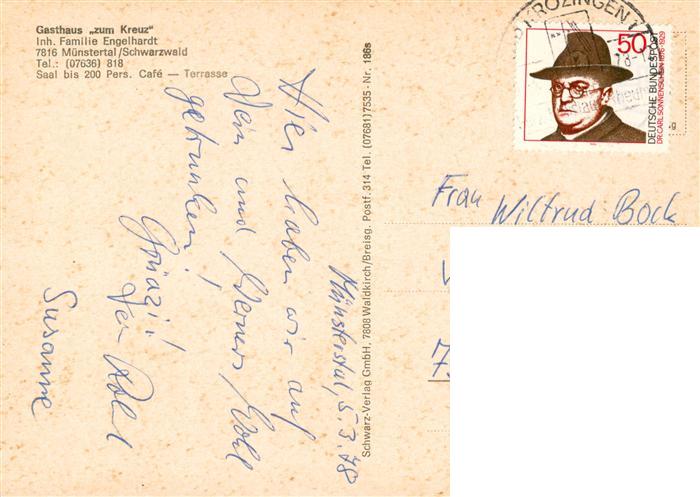 Gasthaus „zum Kreuz“
Inh. Familie Engelhardt
7816 Münstertal/Schwarzwald
Tel.: (07636) 818
Saal bis 200 Pers. Café — Terrasse
Münstertal, 5.3.78
Hier haben wir auf
Dein und Werners Wohl
getrunken!
Susanne
Schwarz-Verlag GmbH, 7808 Waldkirch/Breisg. Postf. 314 Tel. (07681) 7535 - Nr. 186s
KROZINGEN
50
DEUTSCHE BUNDESPOST
DR. CARL SONNENSCHEIN 1876-1929
Frau Wiltrud Bock
7